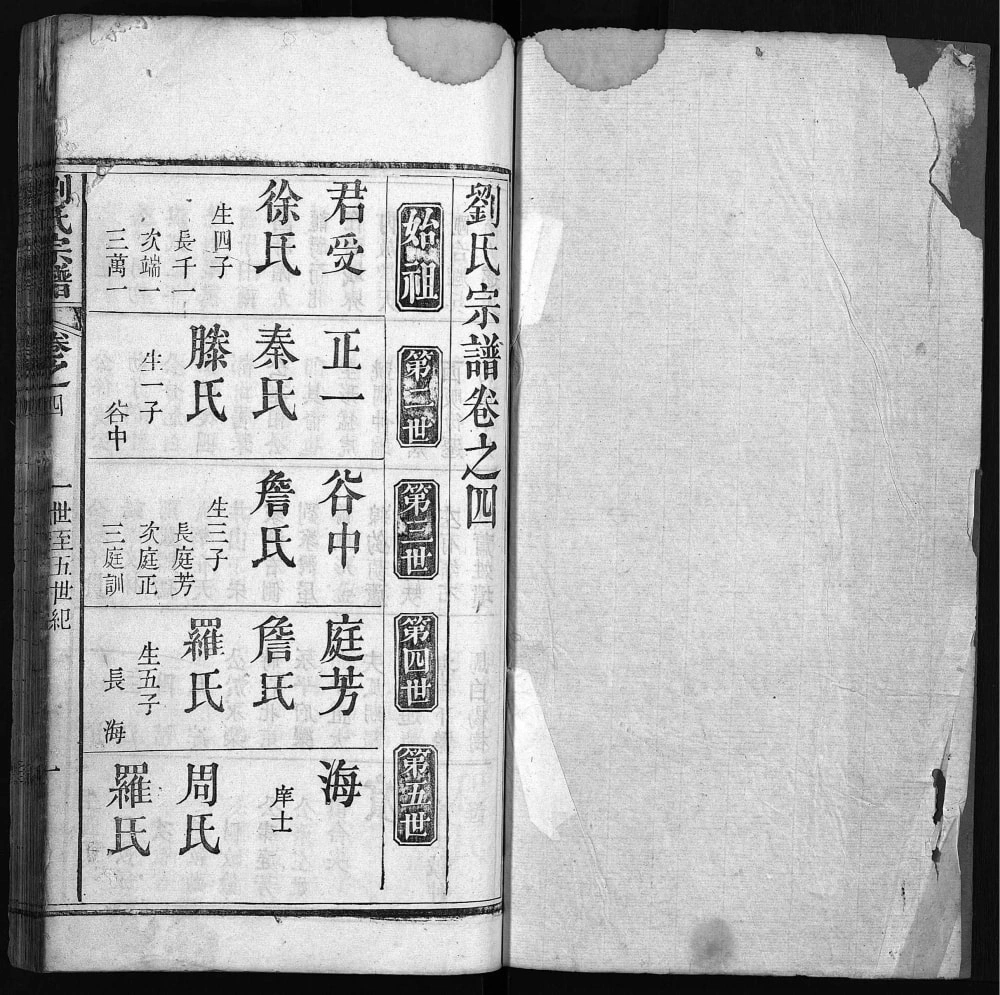 劉氏宗譜卷之四
始祖
君受
徐氏
生四子
長千一
次端一
三萬一
第二世
正一
秦氏
滕氏
生一子
谷中
第三世
谷中
詹氏
生三子
長庭芳
次庭正
三庭訓
第四世
庭芳
詹氏
羅氏
生五子
長 海
第五世
海
庠士
周氏
羅氏
劉氏宗譜
卷之四
一世至五世紀
一